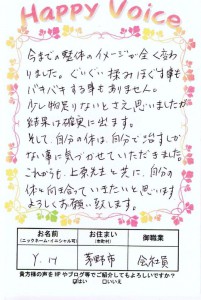 Happy Voice
今までの整体のイメージが全く変わ
りました。ぐいぐい揉みほぐす事も
バキバキする事もありません。
少し物足りないとさえ思いましたが
結果は確実に出ます。
そして、自分の体は、自分で治すしか
ない事に気づかせていただきました。
これからも、上条先生と共に、自分の
体と向き合っていきたいと思います
よろしくお願い致します。
お名前
(ニックネーム・イニシャル可)
お住まい
(市町村)
御職業
Y.M
茅野市
会社員
貴方様の声をHPやブログ等でご紹介してもよろしいですか?
はい □いいえ